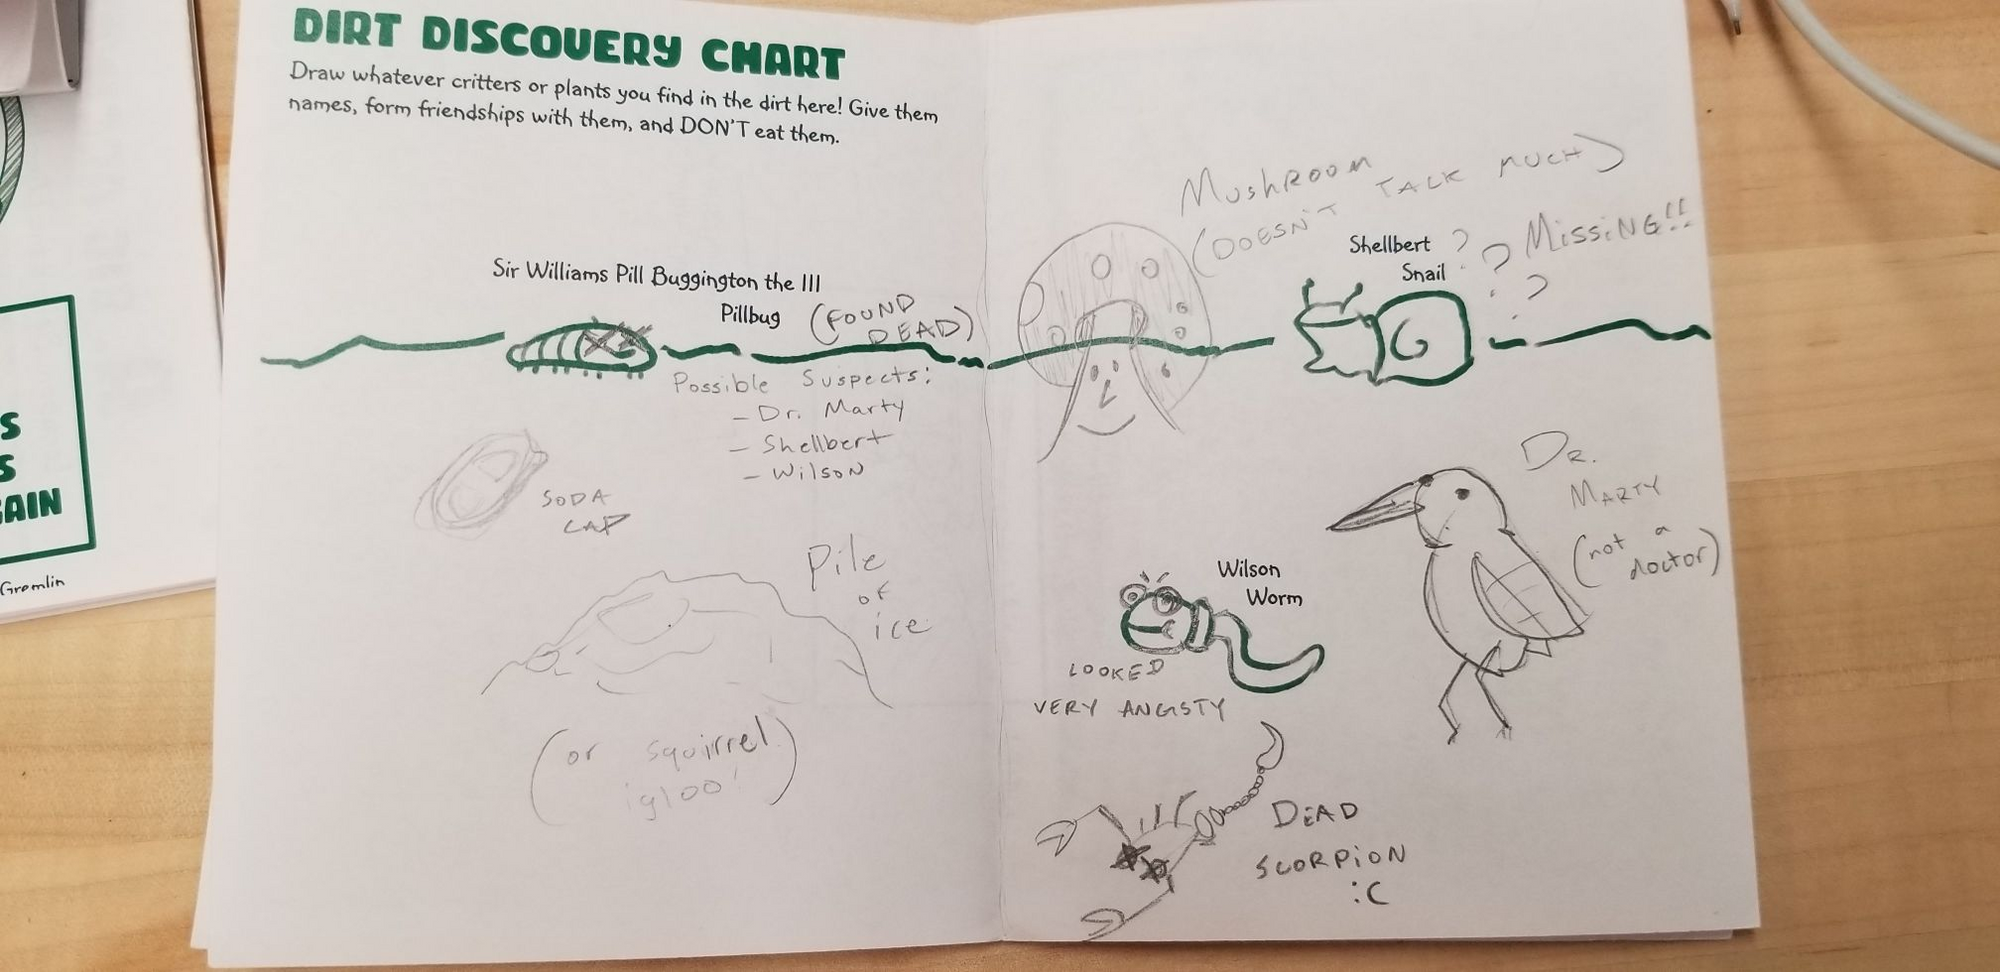 DIRT DISCOVERY CHART
Draw whatever critters or plants you find in the dirt here! Give them
names, form friendships with them, and DON'T eat them.
Sir Williams Pill Buggington the III
Pillbug (FOUND
DEAD)
Possible Suspects:
- Dr. Marty
- Shellbert
- Wilson
SODA
CAP
Pile
of
ice
(or squirrel
igloo!)
MushROOM
(DOESN'T TALK MUCH)
Shellbert ? ? MissiNG!!
Snail ?
DR.
MARTY
(not a
doctor)
Wilson
Worm
LOOKED
VERY ANGSTY
DEAD
SCORPION
:C
S
S
GAIN
Gremlin